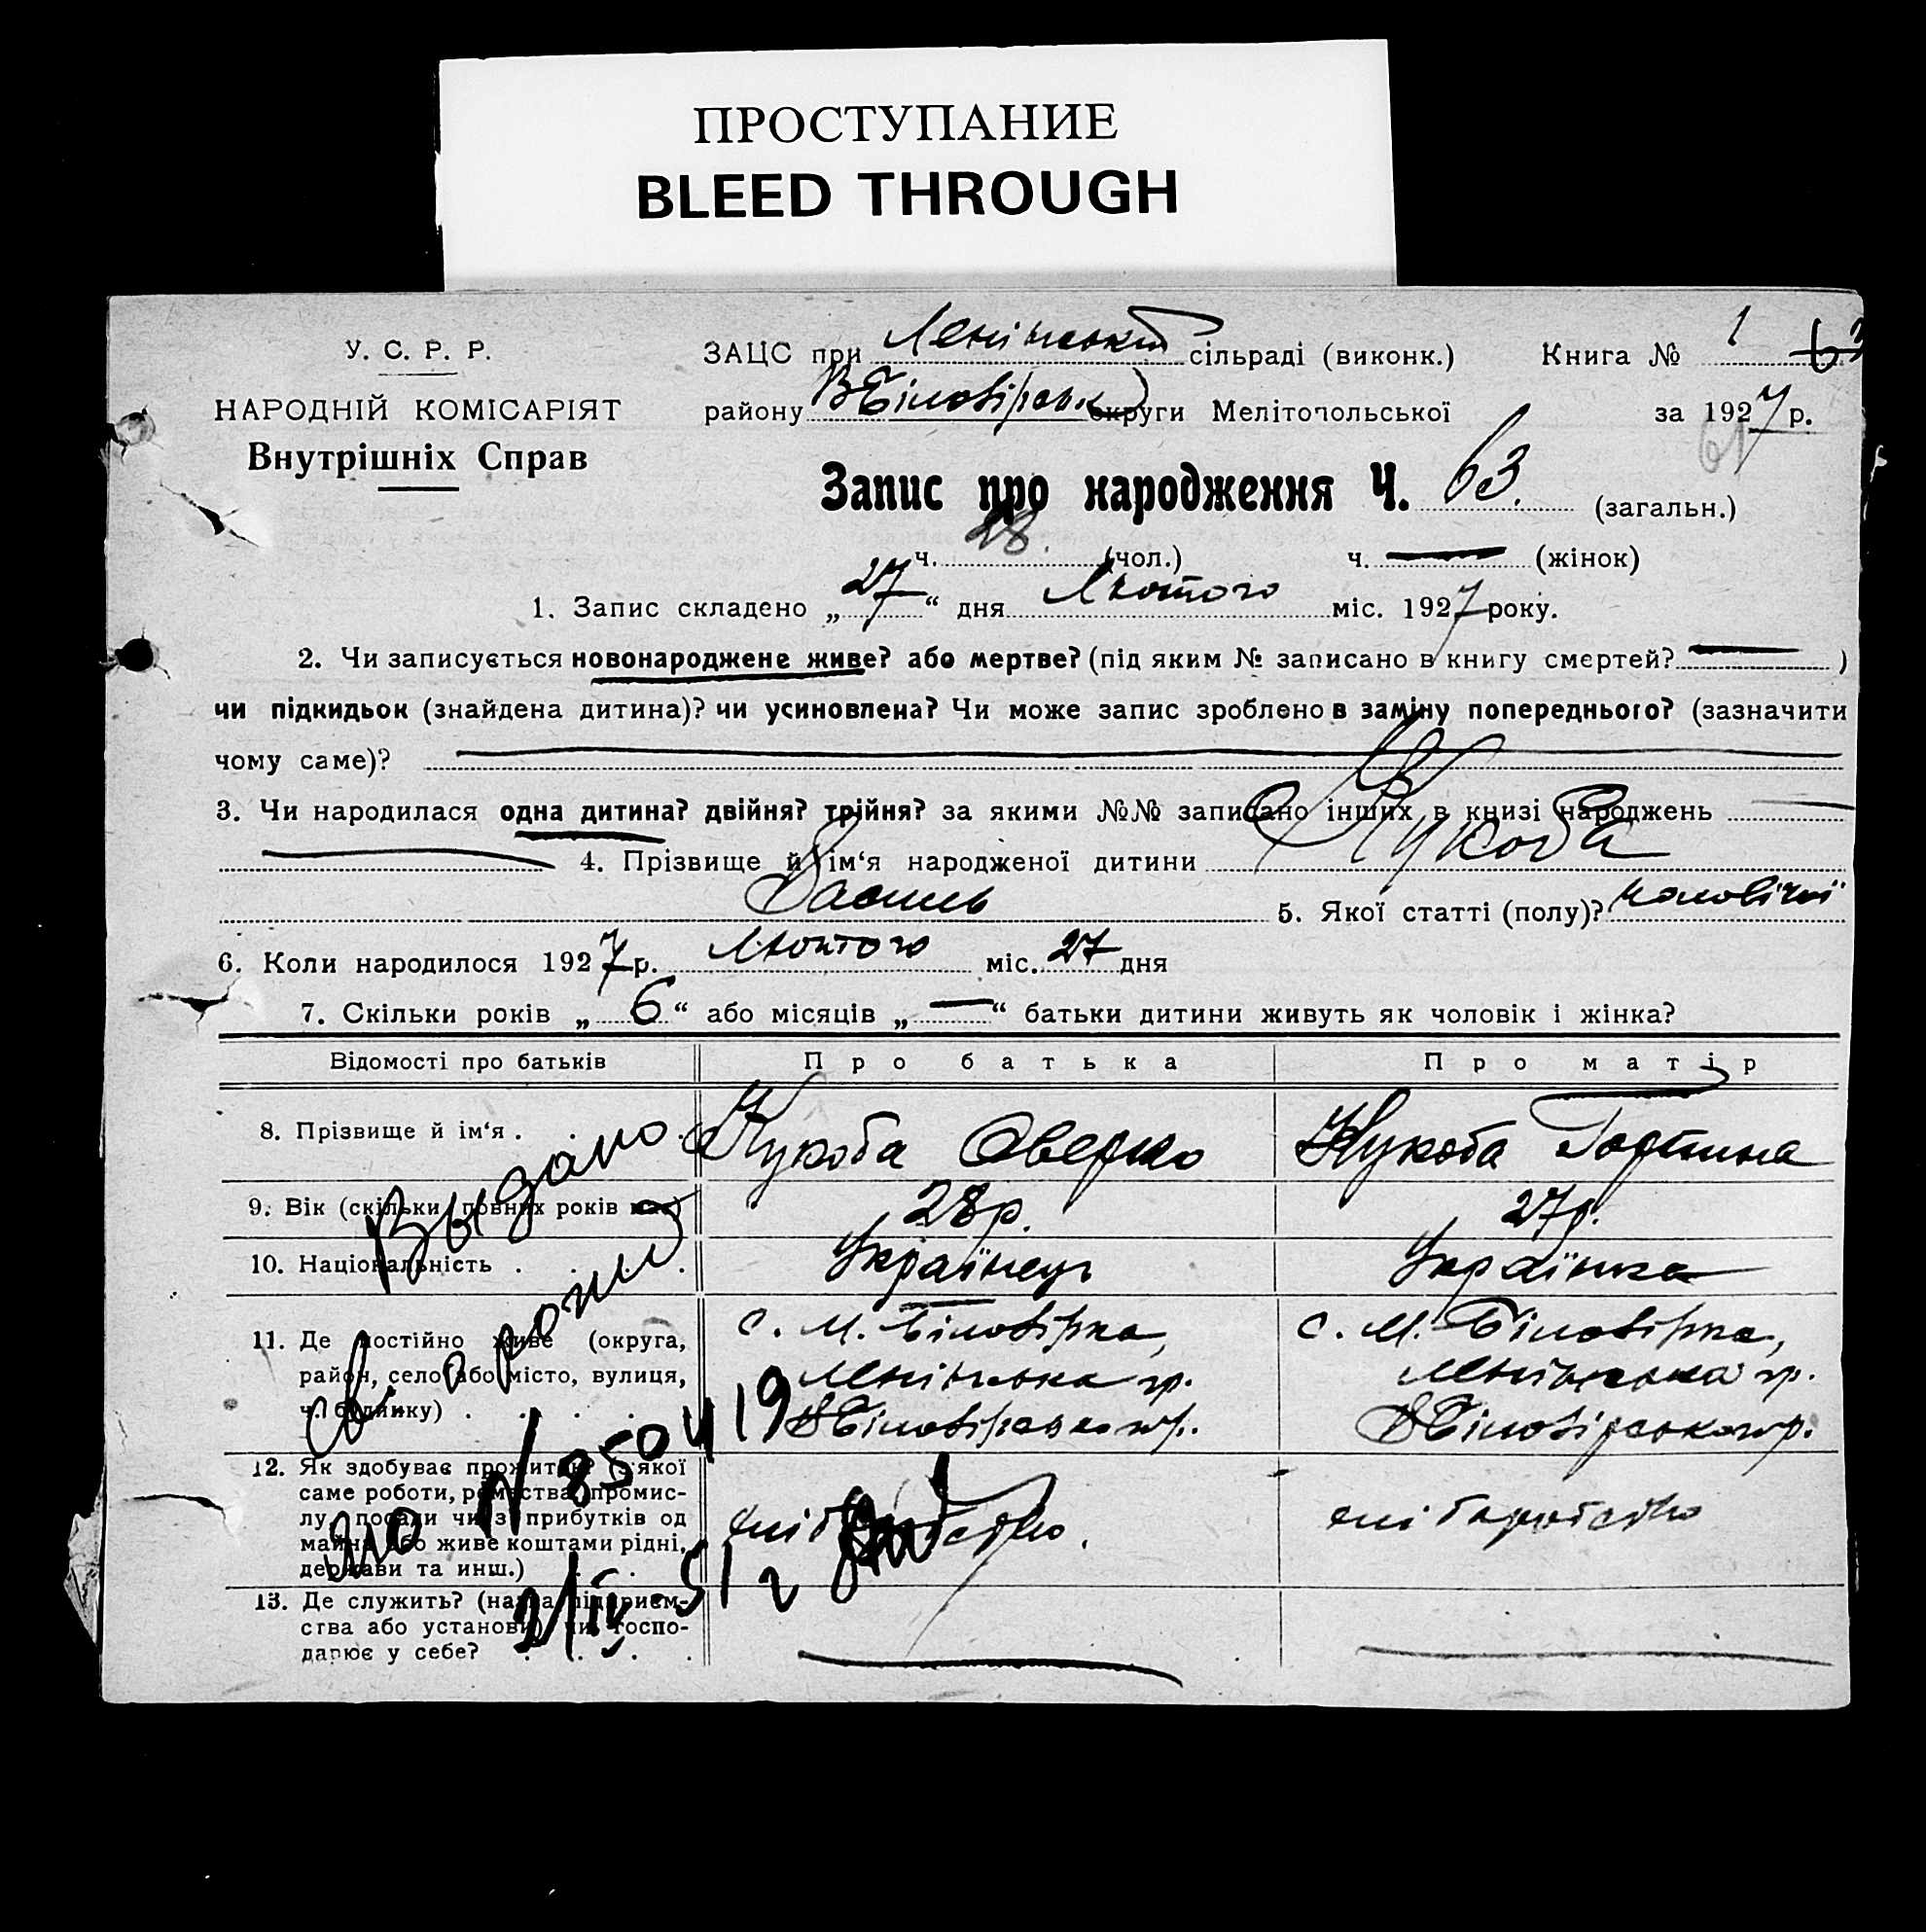 ПРОСТУПАНИЕ
BLEED THROUGH
У. С. Р. Р.
НАРОДНІЙ КОМІСАРІЯТ
Внутрішніх Справ
ЗАЦС при Ленінський сільраді (виконк.) Книга № 1 63
району ВБіловірськ округи Мелітопольської за 1927 р.
61
Запис про народження Ч. 63. (загальн.)
ч. 28. (чол.) ч. — (жінок)
1. Запис складено „27“ дня Лютого міс. 1927 року.
2. Чи записується новонароджене живе? або мертве? (під яким № записано в книгу смертей? — )
чи підкидьок (знайдена дитина)? чи усиновлена? Чи може запис зроблено в заміну попереднього? (зазначити
чому саме)?
3. Чи народилася одна дитина? двійня? трійня? за якими №№ записано інших в книзі народжень
4. Прізвище й ім‘я народженої дитини Кукоба
Василь 5. Якої статті (полу)? чоловічої
6. Коли народилося 1927 р. Лютого міс. 27 дня
7. Скільки років „6“ або місяців „—“ батьки дитини живуть як чоловік і жінка?
Відомості про батьків Про батька Про матір
8. Прізвище й ім‘я . Кукоба Оверко Кукоба Горпина
9. Вік (скільки повних років має) 28р. 27р.
10. Національність . Українець Українка
11. Де постійно живе (округа, с. М. Біловірка, с. М. Біловірка,
район, село або місто, вулиця, Ленінська гр. Ленінська гр.
ч. будинку) . ВБіловірського р. ВБіловірського р.
12. Як здобуває прожиток? (з якої
саме роботи, ремества, промис-
лу, посади чи з прибутків од хліборобство . хліборобство
майна або живе коштами рідні,
держави та инш.)
13. Де служить? (назва підприєм-
ства або установи) чи госпо-
дарює у себе?
Выдано
св. о рожд
ЯЮ № 850419
2/IV 51 г